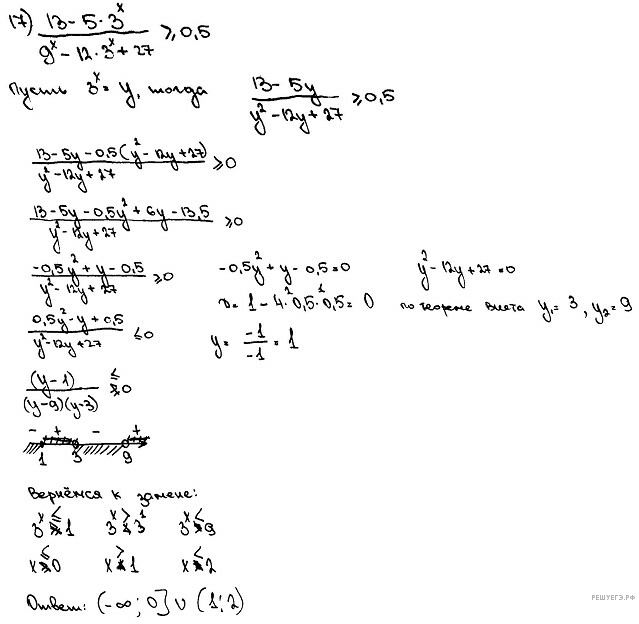 17) (13 - 5·3^x)/(9^x - 12·3^x + 27) ≥ 0,5
Пусть 3^x = y, тогда (13 - 5y)/(y² - 12y + 27) ≥ 0,5
(13 - 5y - 0,5(y² - 12y + 27))/(y² - 12y + 27) ≥ 0
(13 - 5y - 0,5y² + 6y - 13,5)/(y² - 12y + 27) ≥ 0
(-0,5y² + y - 0,5)/(y² - 12y + 27) ≥ 0 -0,5y² + y - 0,5 = 0 y² - 12y + 27 = 0
D = 1 - 4·0,5·0,5 = 0 по теореме Виета y₁ = 3, y₂ = 9
(0,5y² - y + 0,5)/(y² - 12y + 27) ≤ 0 y = -1/-1 = 1
(y - 1)/((y - 9)(y - 3)) ≤ 0
- + - +
1 3 9
Вернёмся к замене:
3^x ≤ 1 3^x > 3^1 3^x < 9
x ≤ 0 x > 1 x < 2
Ответ: (-∞; 0] ∪ (1; 2)
РЕШУЕГЭ.РФ